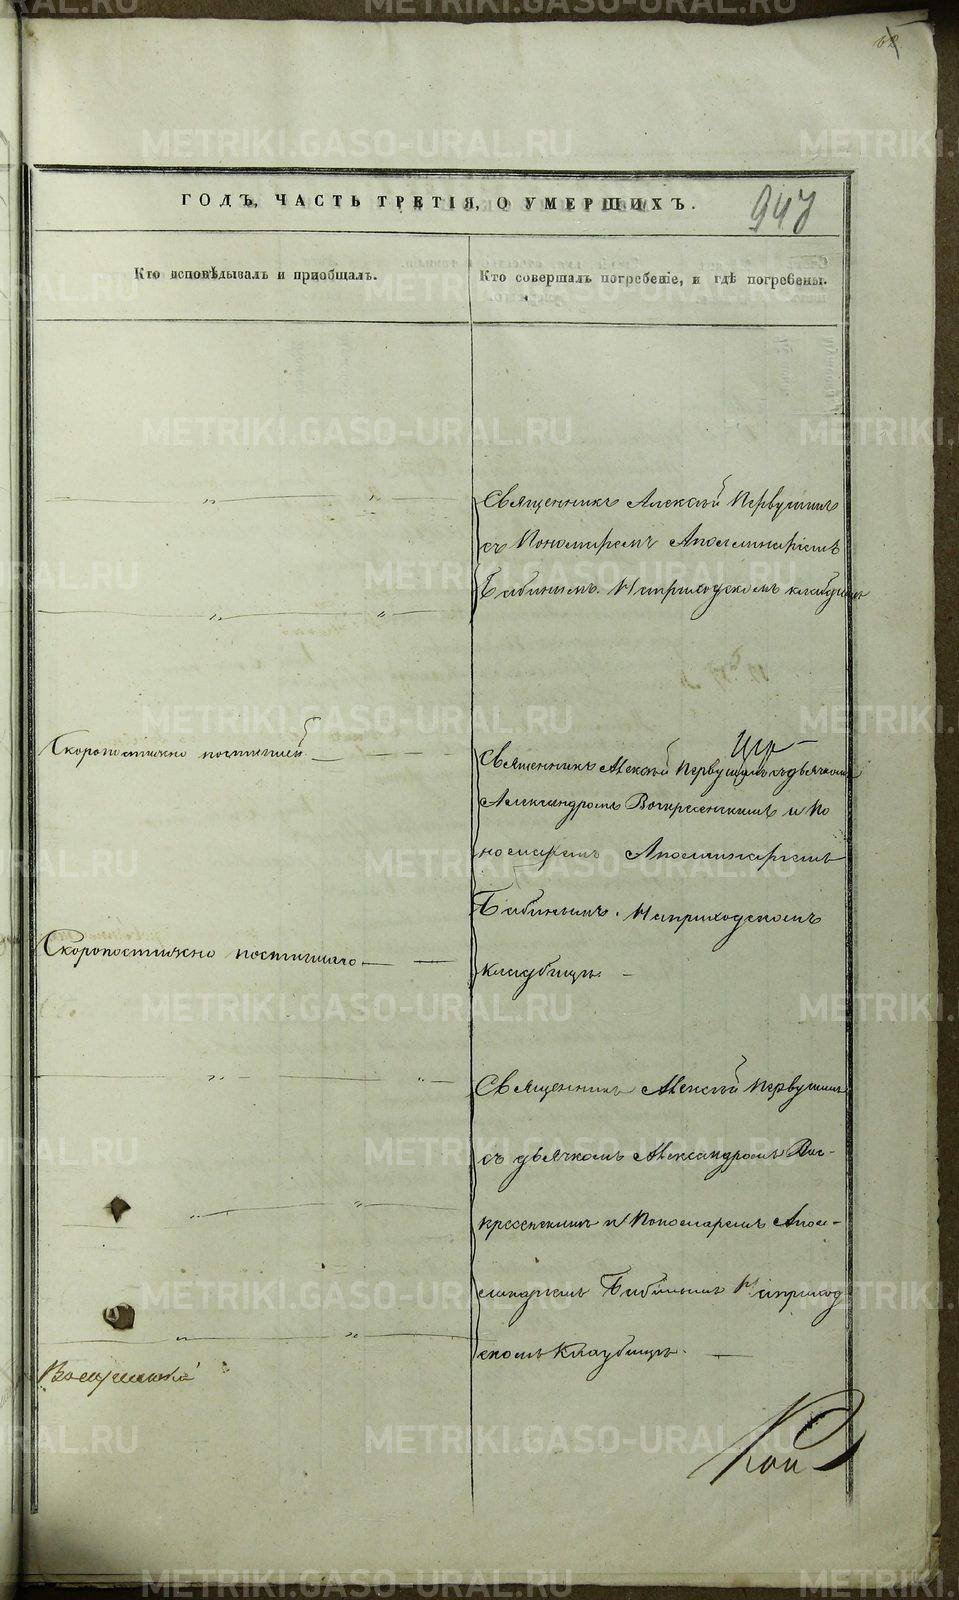 62
ГОДЪ, ЧАСТЬ ТРЕТІЯ, О УМЕРШИХЪ.
947
Кто исповѣдывалъ и пріобщалъ.
Кто совершалъ погребеніе, и гдѣ погребены.
Священникъ Алексѣй Первушинъ
съ Пономаремъ Аполинаріемъ
Бабинымъ. На приходскомъ кладбищѣ
Скоропостижно постигшей
Священникъ Алексѣй Первушинъ съ дьячкомъ
Александромъ Воскресенскимъ и По
номаремъ Аполинаріемъ
Бабинымъ. На приходскомъ
Скоропостижно постигшаго
кладбищѣ.
Священникъ Алексѣй Первушинъ
съ дьячкомъ Александромъ Вос-
кресенскимъ и Пономаремъ Апол-
линаріемъ Бабинымъ На приход
скомъ Кладбищѣ.
METRIKI.GASO-URAL.RU